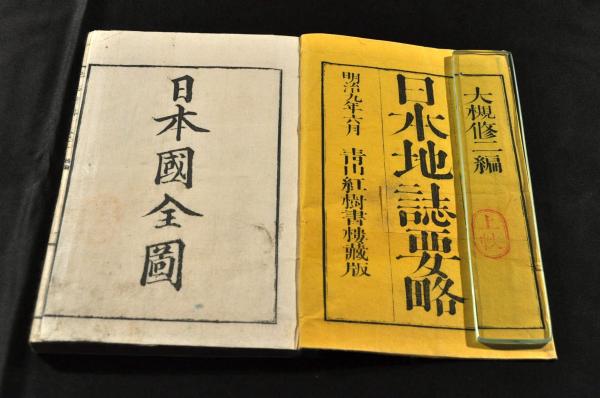 大槻修二編
日本地誌要略
明治九年六月 青山紅樹書樓藏版
上帙
日本國全圖